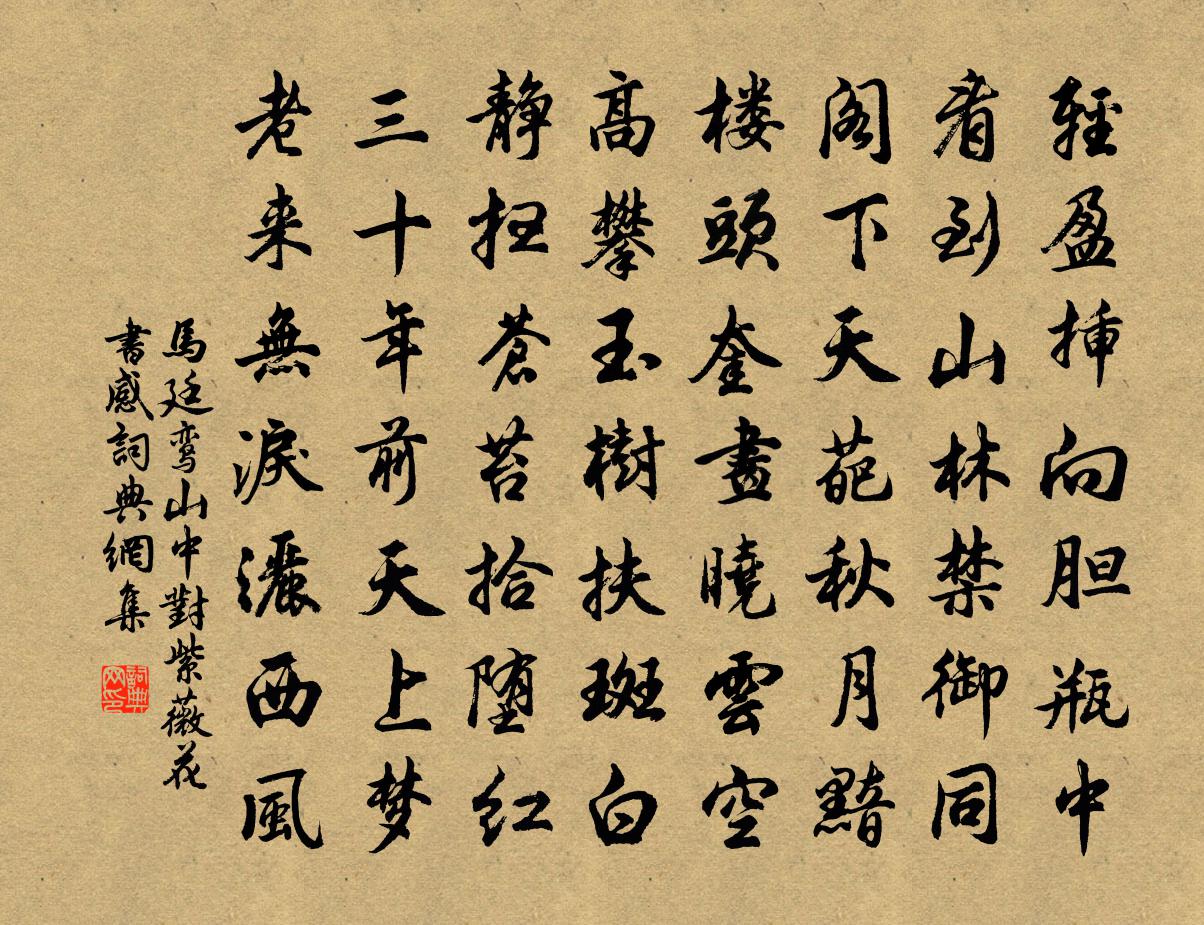 輕盈揷向胆瓶中
看到山林禁御同
阁下天葩秋月黯
楼頭奎畫曉雲空
高攀玉樹扶斑白
静扫蒼苔拾堕红
三十年前天上梦
老来無淚灑西風
馬廷鸾山中對紫薇花
書感詞典網集
詞典网印